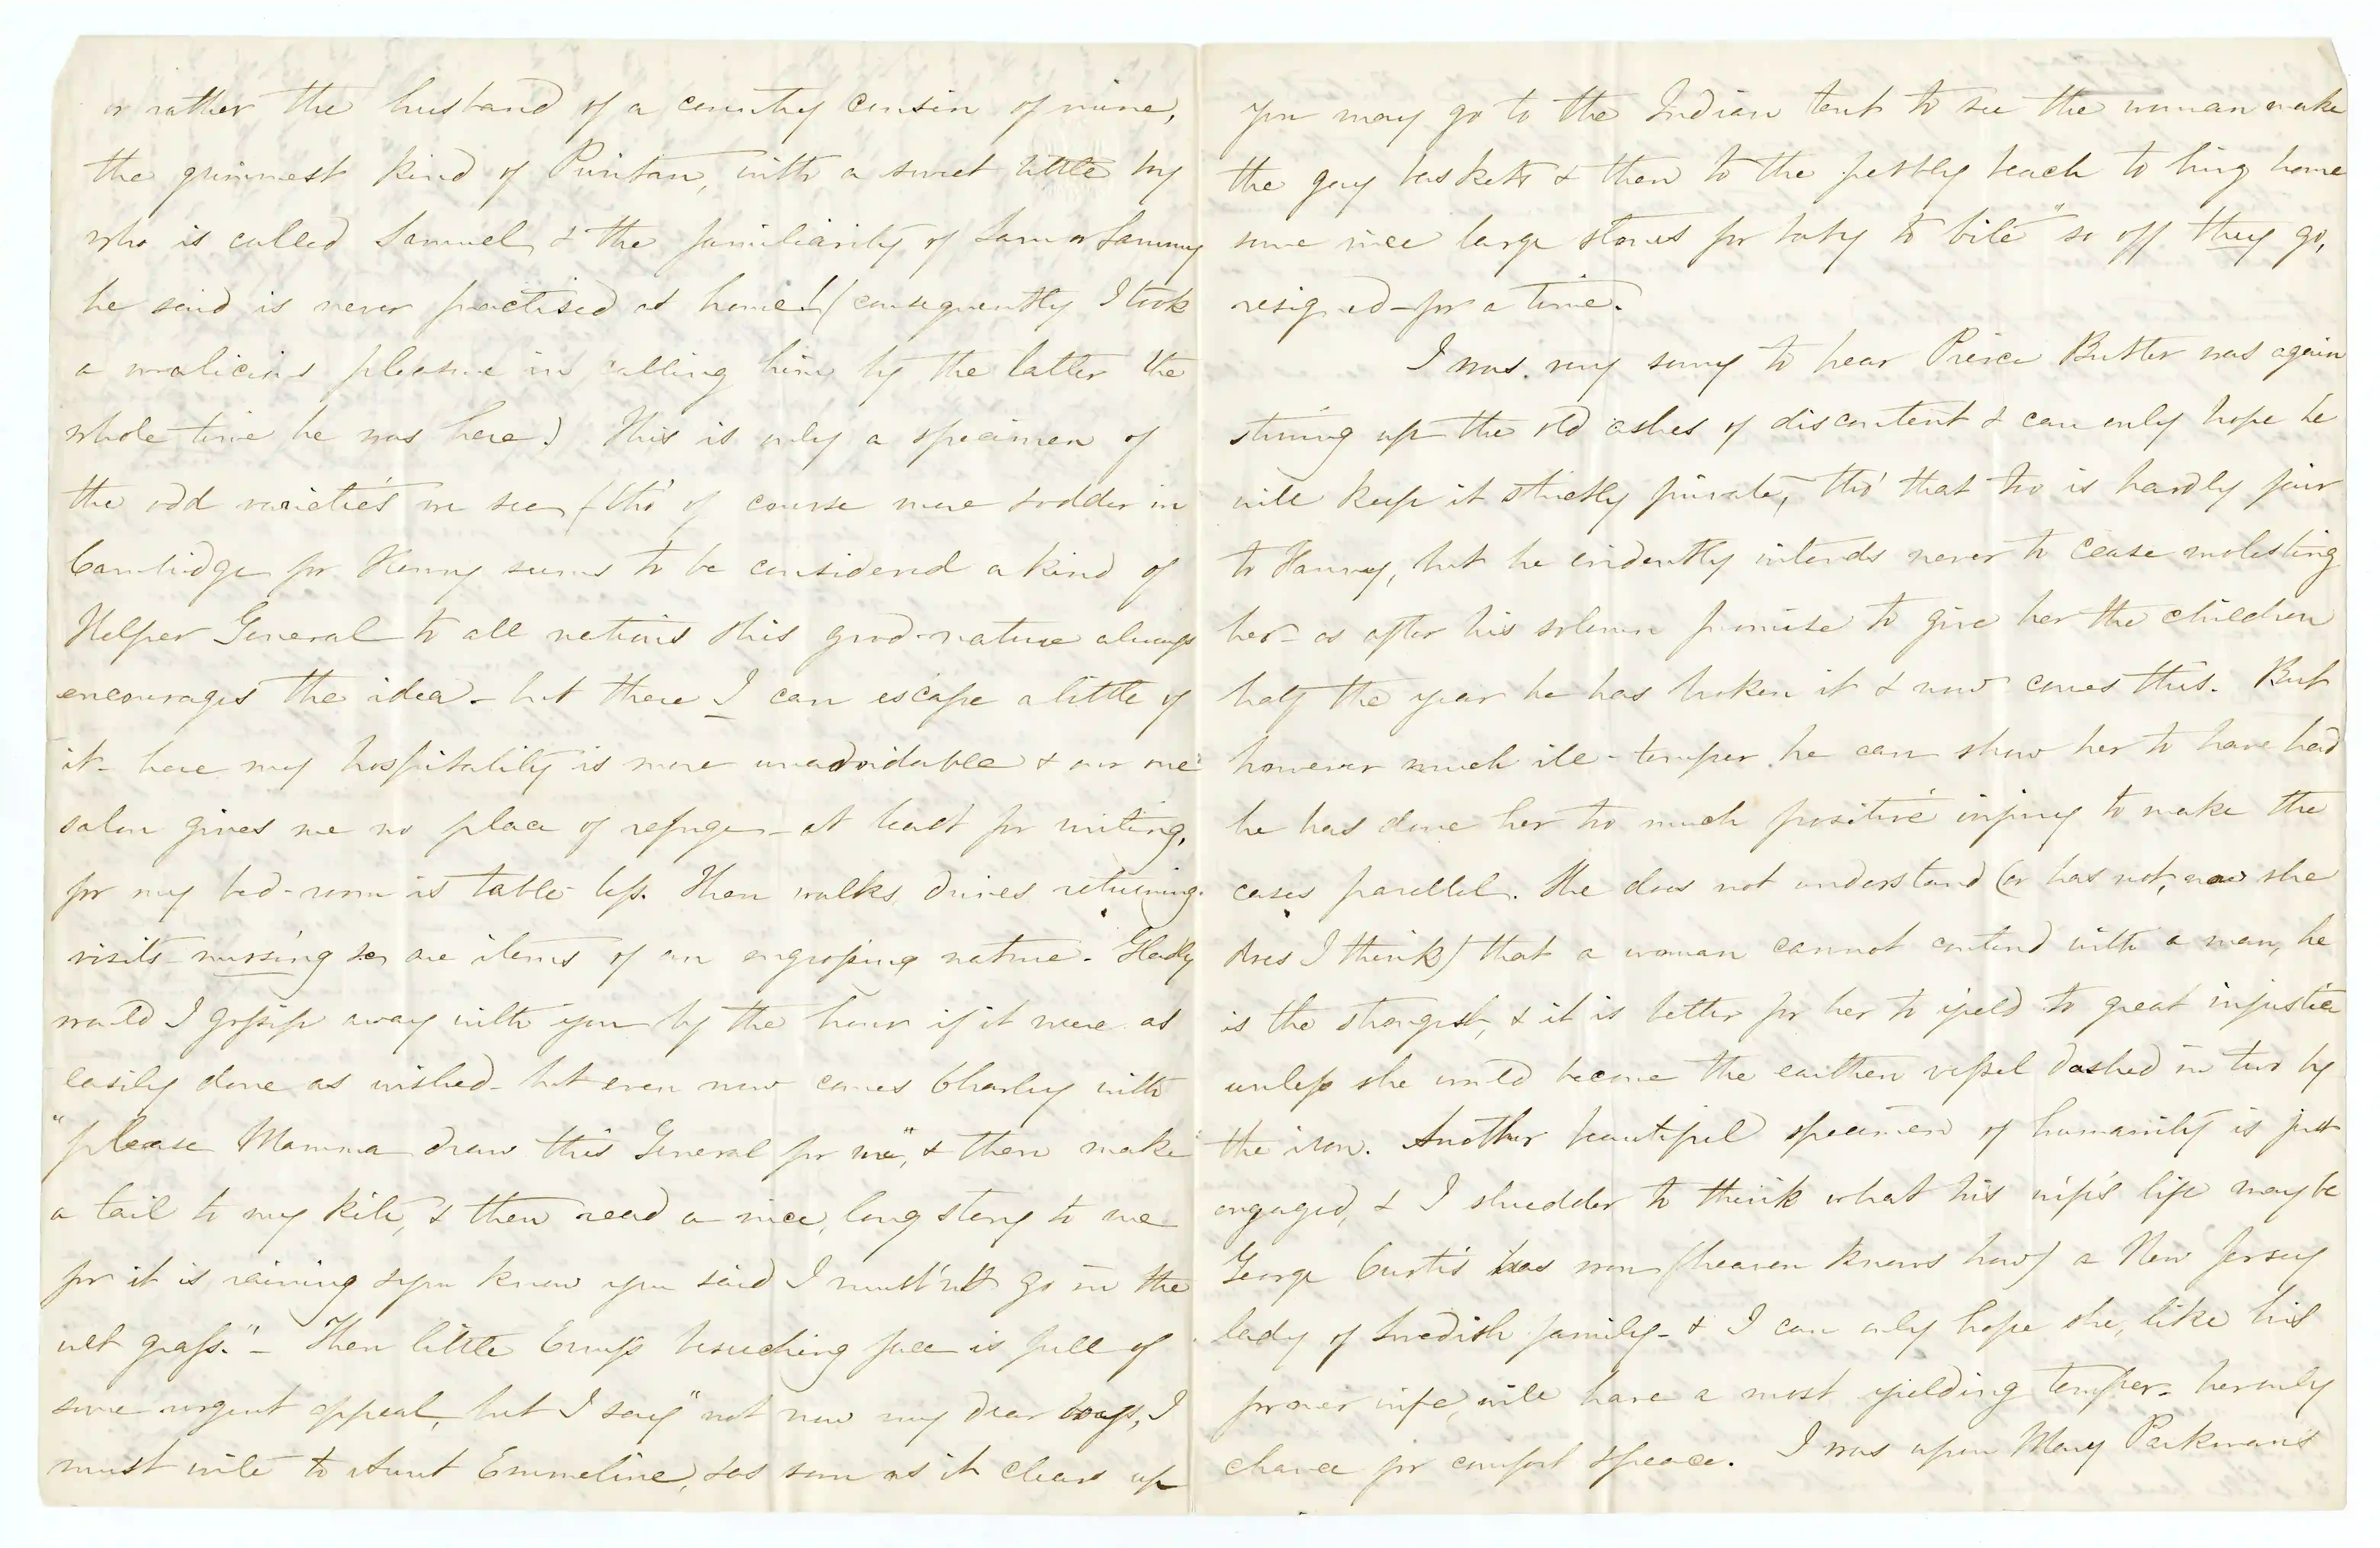 or rather the husband of a country cousin of mine,
the grimmest kind of Puritan, with a sweet little boy
who is called Samuel, & the familiarity of Sam or Sammy
he said is never practised at home! (consequently I took
a malicious pleasure in calling him by the latter the
whole time he was here.) This is only a specimen of
the odd varieties we see (tho' of course more & odder in
Cambridge for Henry seems to be considered a kind of
Helper General to all nations & his good-nature always
encourages the idea - but there I can escape a little of
it - here my hospitality is more unavoidable & our one
salon gives me no place of refuge - at least for writing,
for my bed-room is table-less. Then walks, drives, returning
visits - nursing &c are items of an engrossing nature. Gladly
would I gossip away with you by the hour if it were as
easily done as wished - but even now comes Charley with
"please Mamma draw this General for me", & then make
a tail to my kite, & then read a nice, long story to me
for it is raining & you know you said I must'nt go in the
wet grass." - Then little Erny's beseeching face is full of
some urgent appeal, but I say "not now my dear boys, I
must write to Aunt Emmeline, & as soon as it clears up
you may go to the Indian tent to see the woman make
the gay baskets & then to the pebbly beach to bring home
some nice large stones for baby to bite" so off they go,
resigned - for a time.
I was very sorry to hear Pierce Butler was again
stirring up the old ashes of discontent & can only hope he
will keep it strictly private, tho' that too is hardly fair
to Fanny, but he evidently intends never to cease molesting
her - as after his solemn promise to give her the children
half the year he has broken it & now comes this. But
however much ill-temper he can show her to have had
he has done her too much positive injury to make the
cases parallel. She does not understand (or has not, now she
does I think) that a woman cannot contend with a man, he
is the strongest, & it is better for her to yield to great injustice
unless she would become the earthen vessel dashed in two by
the iron. Another beautiful specimen of humanity is just
engaged, & I shudder to think what his wife's life may be
George Curtis has won (heaven knows how) a New Jersey
lady of Swedish family - & I can only hope she, like his
former wife, will have a most yielding temper - her only
chance for comfort & peace. I was upon Mary Parkman's